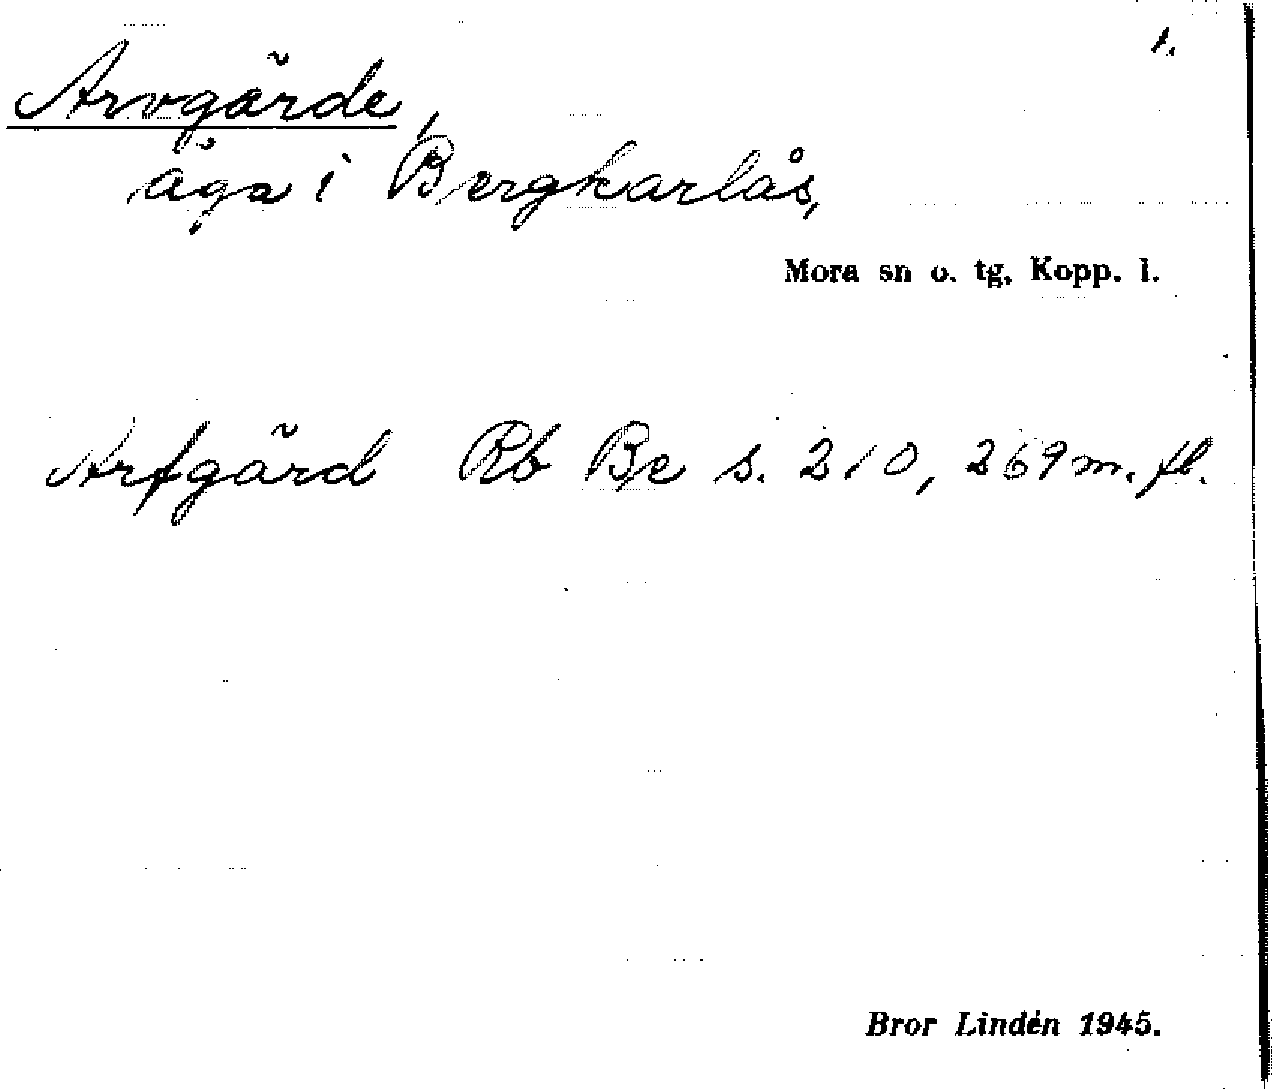 1.
Arvgärde,
äga i Bergkarlås,
Mora sn o. tg. Kopp. l.
Arfgärd Rb Be s. 210, 269 m. fl.
Bror Lindén 1945.